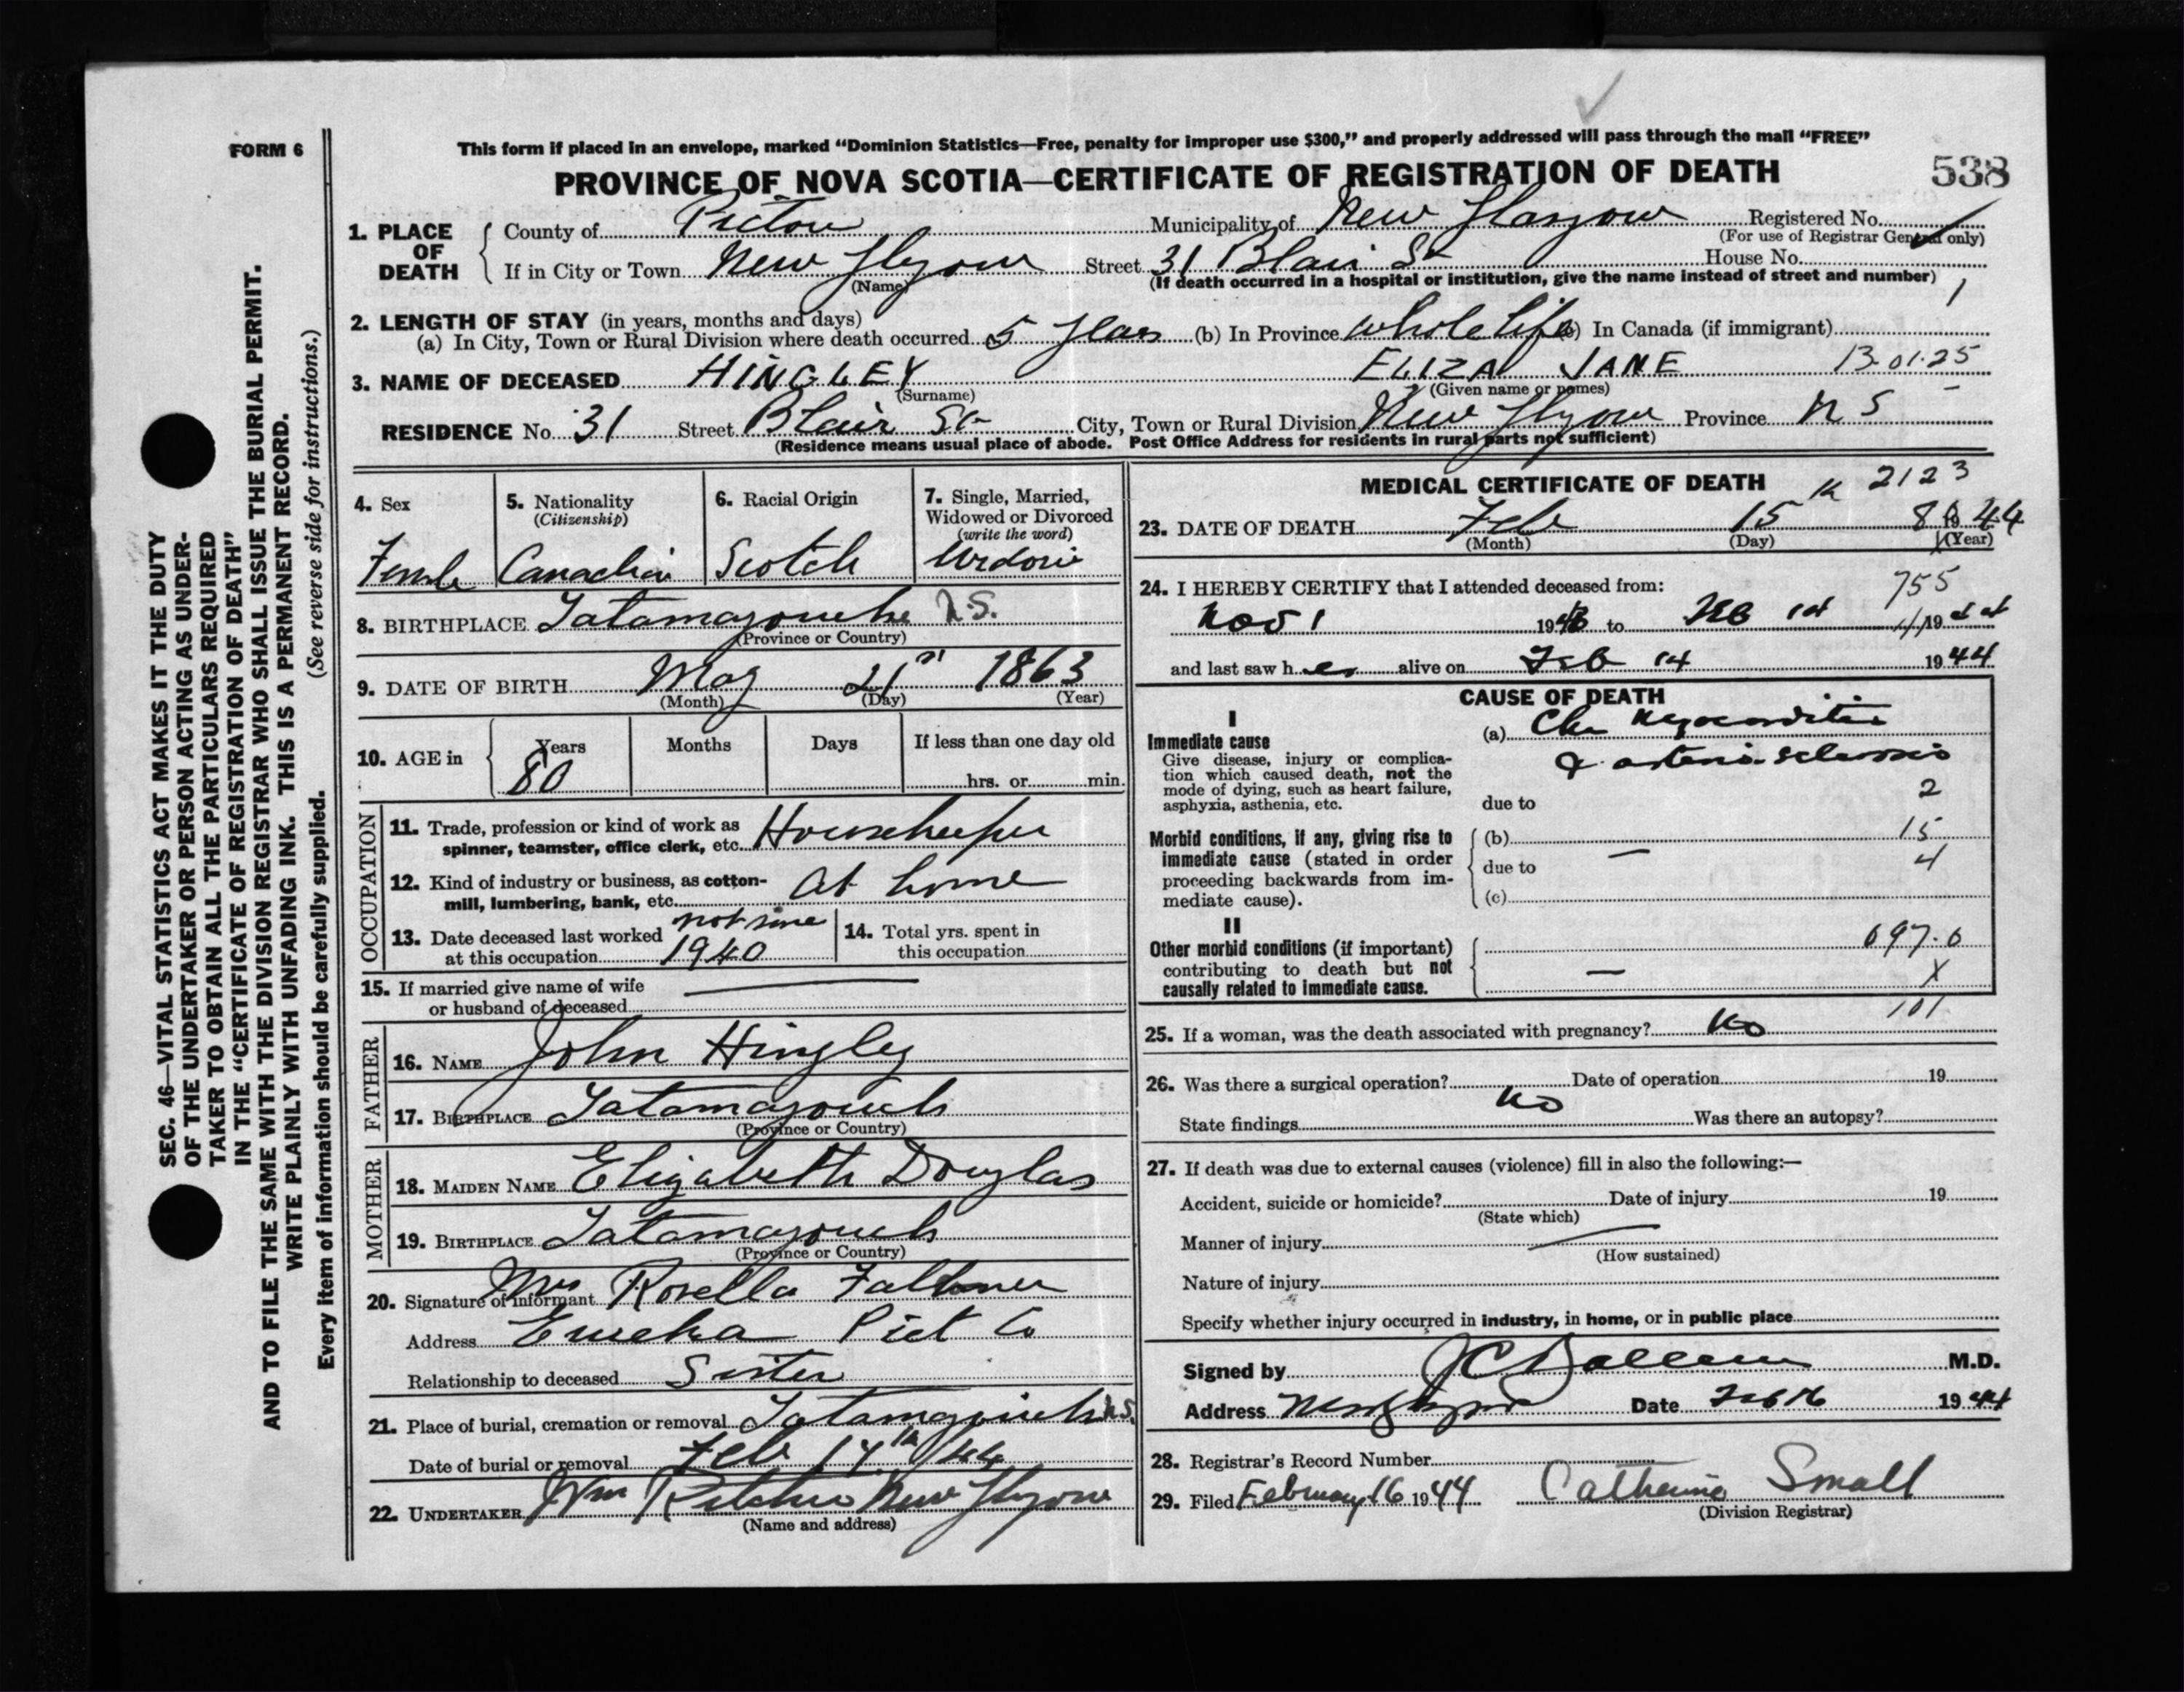 FORM 6
This form if placed in an envelope, marked "Dominion Statistics—Free, penalty for improper use $300," and properly addressed will pass through the mail "FREE"
PROVINCE OF NOVA SCOTIA—CERTIFICATE OF REGISTRATION OF DEATH
538
1. PLACE OF DEATH
County of Pictou Municipality of New Glasgow Registered No.
(For use of Registrar General only)
If in City or Town New Glasgow Street 31 Blair St House No.
(Name)
(If death occurred in a hospital or institution, give the name instead of street and number)
1
2. LENGTH OF STAY (in years, months and days)
(a) In City, Town or Rural Division where death occurred 5 Years (b) In Province whole life (c) In Canada (if immigrant)
3. NAME OF DECEASED HINGLEY ELIZA JANE 13-01-25
(Surname) (Given name or names)
RESIDENCE No. 31 Street Blair St City, Town or Rural Division New Glasgow Province N S
(Residence means usual place of abode. Post Office Address for residents in rural parts not sufficient)
4. Sex
Female
5. Nationality
(Citizenship)
Canadian
6. Racial Origin
Scotch
7. Single, Married,
Widowed or Divorced
(write the word)
Widow
8. BIRTHPLACE Tatamagouche N.S.
(Province or Country)
9. DATE OF BIRTH May 21st 1863
(Month) (Day) (Year)
10. AGE in
Years Months Days If less than one day old
80 hrs. or min.
OCCUPATION
11. Trade, profession or kind of work as
spinner, teamster, office clerk, etc. Housekeeper
12. Kind of industry or business, as cotton-
mill, lumbering, bank, etc. At home
13. Date deceased last worked not since
at this occupation 1940
14. Total yrs. spent in
this occupation
15. If married give name of wife
or husband of deceased
FATHER
16. NAME John Hingley
17. BIRTHPLACE Tatamagouch
(Province or Country)
MOTHER
18. MAIDEN NAME Elizabeth Douglas
19. BIRTHPLACE Tatamagouch
(Province or Country)
20. Signature of informant Mrs Rosella Falkner
Address Eureka Pict Co
Relationship to deceased Sister
21. Place of burial, cremation or removal Tatamagouch N.S.
Date of burial or removal Feb 17th /44
22. UNDERTAKER Wm Ritchie New Glasgow
(Name and address)
MEDICAL CERTIFICATE OF DEATH
2123
23. DATE OF DEATH Feb 15th 1944
(Month) (Day) (Year)
24. I HEREBY CERTIFY that I attended deceased from:
755
Nov 1 1943 to Feb 14 1944
and last saw her alive on Feb 14 1944
CAUSE OF DEATH
I
Immediate cause
Give disease, injury or complica-
tion which caused death, not the
mode of dying, such as heart failure,
asphyxia, asthenia, etc.
(a) Chr Myocarditis
& arterio-sclerosis
due to
2
Morbid conditions, if any, giving rise to
immediate cause (stated in order
proceeding backwards from im-
mediate cause).
(b) 15
due to — 4
(c)
II
Other morbid conditions (if important)
contributing to death but not
causally related to immediate cause.
097.0
— X
101
25. If a woman, was the death associated with pregnancy? No
26. Was there a surgical operation? No Date of operation 19
State findings Was there an autopsy?
27. If death was due to external causes (violence) fill in also the following:—
Accident, suicide or homicide? Date of injury 19
(State which)
Manner of injury
(How sustained)
Nature of injury
Specify whether injury occurred in industry, in home, or in public place
Signed by M.D.
Address New Glasgow Date Feb 16 1944
28. Registrar's Record Number
29. Filed February 16 1944 Catherine Small
(Division Registrar)
SEC. 46—VITAL STATISTICS ACT MAKES IT THE DUTY
OF THE UNDERTAKER OR PERSON ACTING AS UNDER-
TAKER TO OBTAIN ALL THE PARTICULARS REQUIRED
IN THE "CERTIFICATE OF REGISTRATION OF DEATH"
AND TO FILE THE SAME WITH THE DIVISION REGISTRAR WHO SHALL ISSUE THE BURIAL PERMIT.
WRITE PLAINLY WITH UNFADING INK. THIS IS A PERMANENT RECORD.
Every item of information should be carefully supplied. (See reverse side for instructions.)